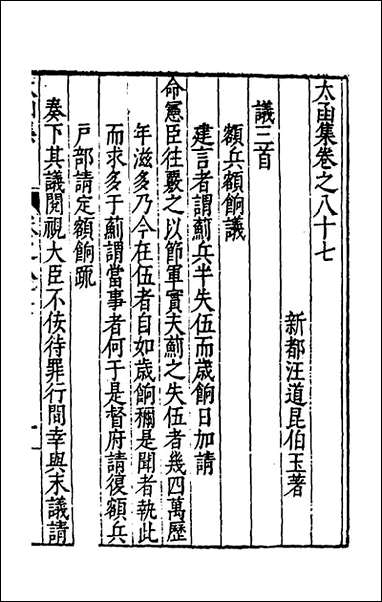 太函集卷之八十七
新都汪道昆伯玉著
議三首
額兵額餉議
建言者謂薊兵半失伍而歲餉日加請
命憲臣往覈之以節軍實夫薊之失伍者幾四萬歷
年滋多乃今在伍者自如歲餉獮是聞者執此
而求多于薊謂當事者何于是督府請復額兵
戶部請定額餉疏
奏下其議閱視大臣不佞待罪行間幸與末議請